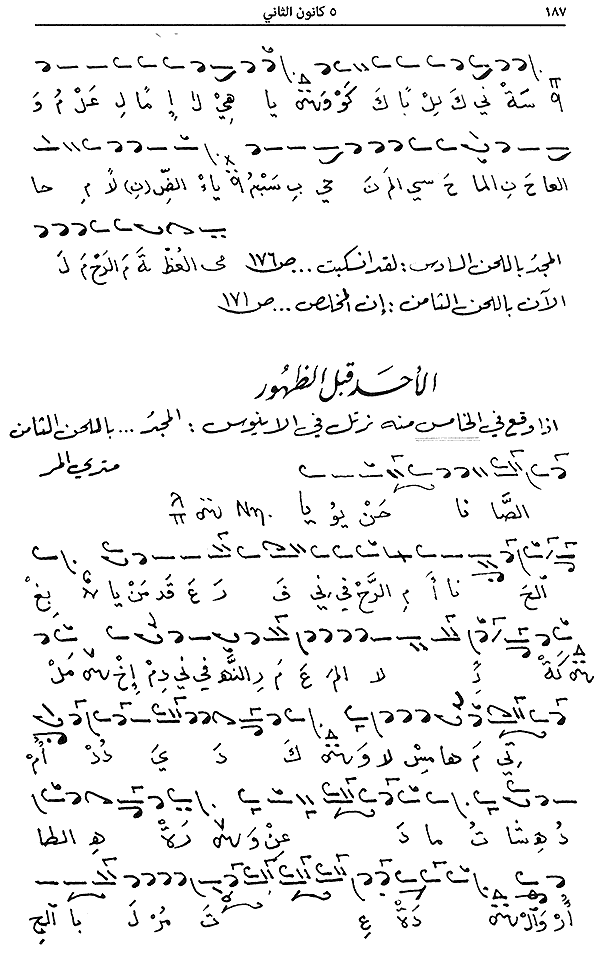 ١٨٧ ٥ كانون الثاني
سَةْ ني كَ لِنْ بًا كَ كَوْ وَ يا هِيْ لا إِ مَا لِ عَلْ مُ وَ
العا حَ نِ الما حَ سي المَ نَ حي بِ ياءْ الضِّ (نِ) لَا مِ حا
المجدُ باللحن السادس : لقد انسكبت ... ص١٧٦ مى العُظْ ةَ مَ الرَحْ مَ لَ
الآن باللحن الثامن : إن المخلص ... ص١٧١
الأحد قبل الظهور
اذا وقع في الخامس منه نرتل في الاينوس : المجدُ ... باللحن الثامن
متري المر
الصَّا نا حَنْ يُوْ يا Nη.
الحَ نا أَ مِ الرَّحْ في ني قَ رَ عَ قَد مَنْ يا بِغْ
كَةْ لا المَ عَ مَ رِ النَّهْ في ني دِمْ إِخْ مَلْ
تي مَ هامِسْ لا وَ كَ دَ يَ دُدْ أُمْ
دُ هِشا تُ ما دَ عِنْ وَ رَةْ هِ الطا
أَرْ وَالْ دَةْ عِ تَ مُرْ لَ با الجِ